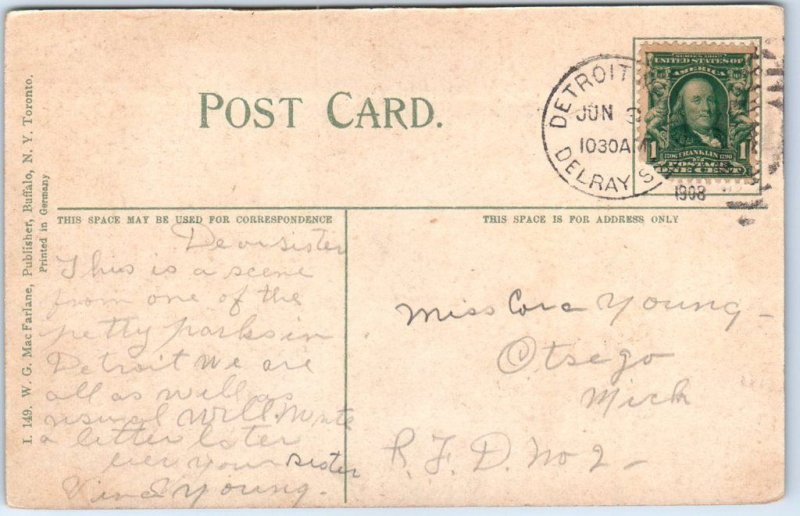 POST CARD.
DETROIT
JUN 3
1030AM
DELRAY S
1908
UNITED STATES OF
AMERICA
1 FRANKLIN 1
POSTAGE
ONE CENT
I. 149. W. G. Mac Farlane, Publisher, Buffalo, N. Y. Toronto.
Printed in Germany.
THIS SPACE MAY BE USED FOR CORRESPONDENCE
Dear sister
This is a scene
from one of the
petty parks in
Detroit We are
all as well as
usual Will Write
a letter later
ever your sister
Young.
THIS SPACE IS FOR ADDRESS ONLY
Miss Cora Young -
Otsego
Mich
R. F. D. No 2 -